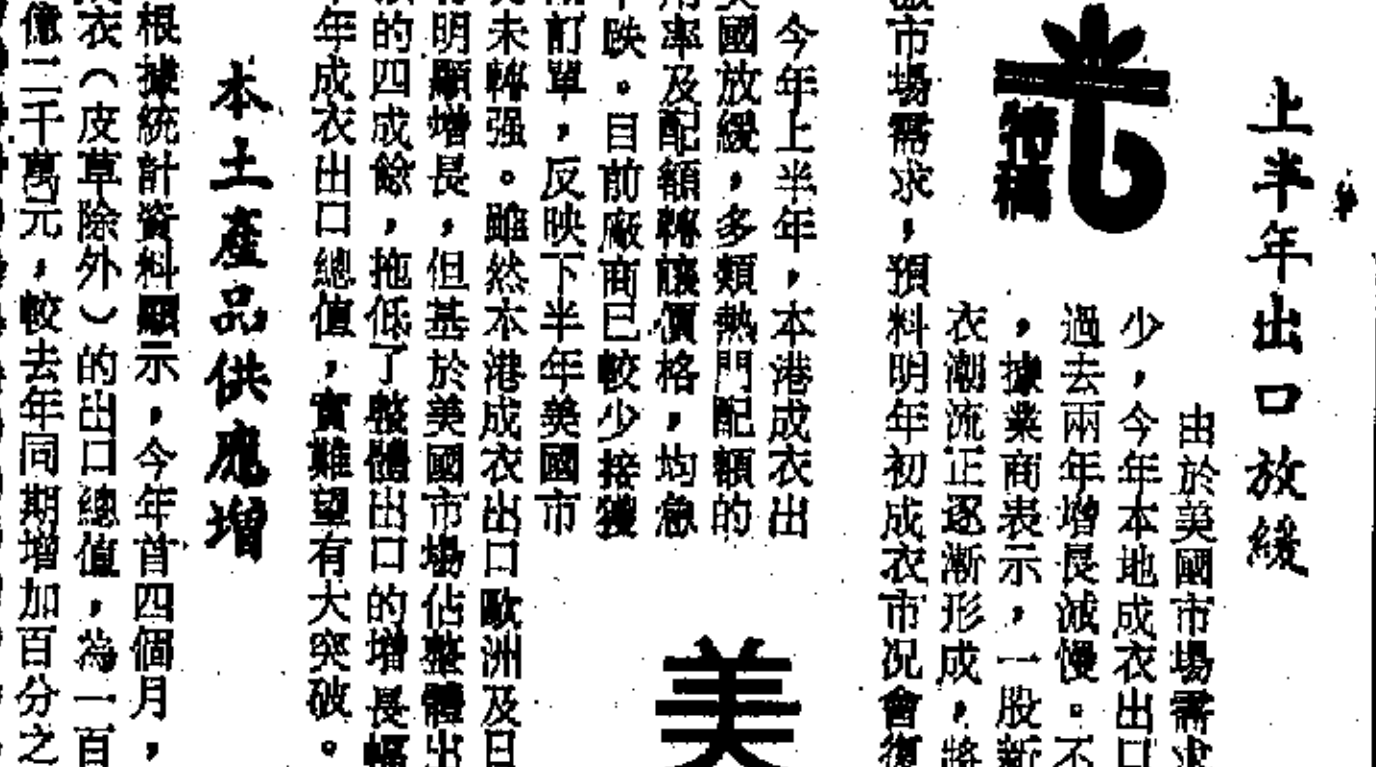 上半年出口放緩
由於美國市場需求
少，今年本地成衣出口
過去兩年增長減慢。不
，據業商表示，一股新
衣潮流正逐漸形成，將
市場需求，預料明年初成衣市况會復
特稿
美
今年上半年，本港成衣出
國放緩，多類熱門配額的
率及配額轉讓價格，均急
映。目前廠商已較少接獲
訂單，反映下半年美國市
未轉强。雖然本港成衣出口歐洲及日
明顯增長，但基於美國市場佔整體出
的四成餘，拖低了整體出口的增長幅
年成衣出口總值，實難望有大突破。
本土產品供應增
根據統計資料顯示，今年首四個月，
衣（皮草除外）的出口總值，為一百
億二千萬元，較去年同期增加百分之